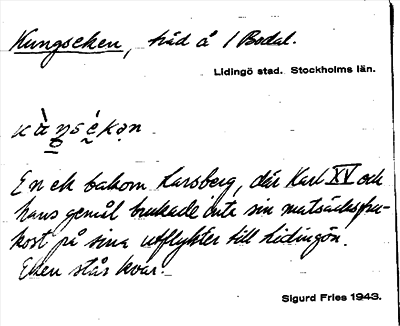 Kungseken, träd å 1 Bodal.
Lidingö stad. Stockholms län.
En ek bakom Larsberg, där Karl XV och
hans gemål brukade inta sin matsäcksfru-
kost på sina utflykter till Lidingön.
Eken står kvar.
Sigurd Fries 1943.